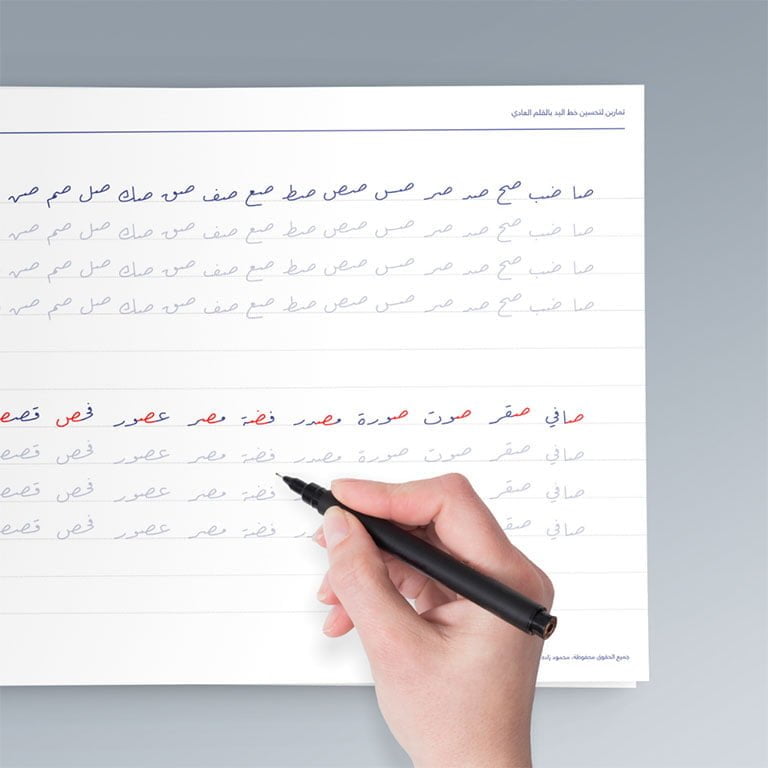 تمارين لتحسين خط اليد بالقلم العادي
صا ضب صح صد صر صس صص صط صع صف صق صك صل صم صن
صا ضب صح صد صر صس صص صط صع صف صق صك صل صم صن
صا ضب صح صد صر صس صص صط صع صف صق صك صل صم صن
صا ضب صح صد صر صس صص صط صع صف صق صك صل صم صن
صافي صقر صوت صورة مصدر فضة مصر عصور فحص
صافي صقر صوت صورة مصدر فضة مصر عصور فحص
صافي صقر فضة مصر عصور فحص
صافي صقر فضة مصر عصور فحص
جميع الحقوق محفوظة، محمود